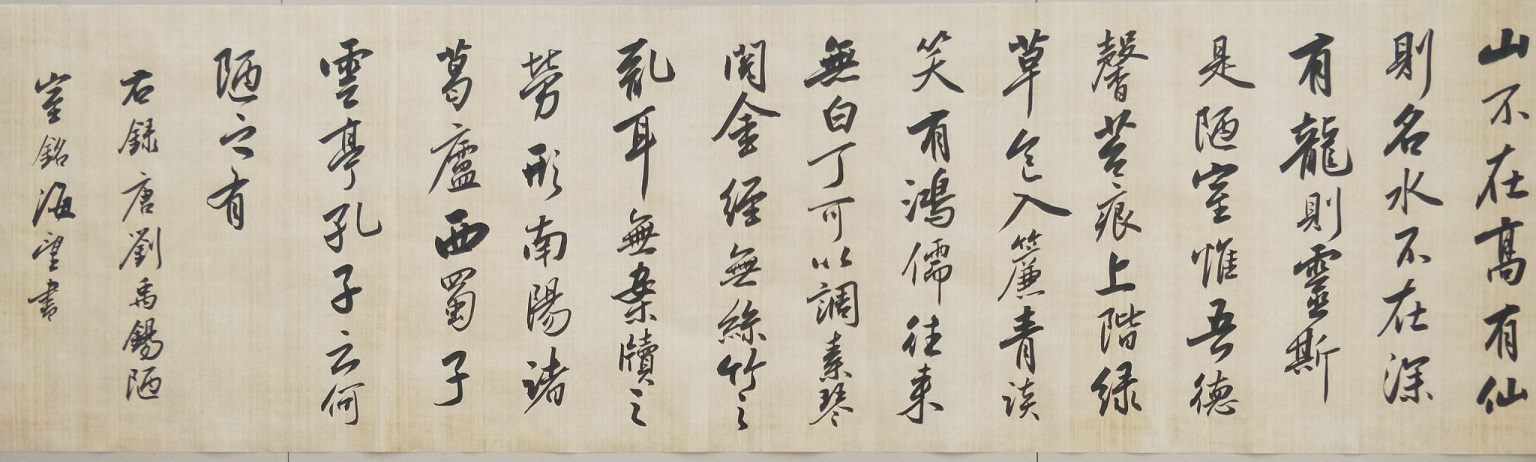 山不在高有仙
則名水不在深
有龍則靈斯
是陋室惟吾德
馨苔痕上階緑
草色入簾青談
笑有鴻儒往来
無白丁可以調素琴
閲金經無絲竹之
亂耳無案牘之
勞形南陽諸
葛廬西蜀子
雲亭孔子云何
陋之有
右録唐劉禹錫陋
室銘海望書